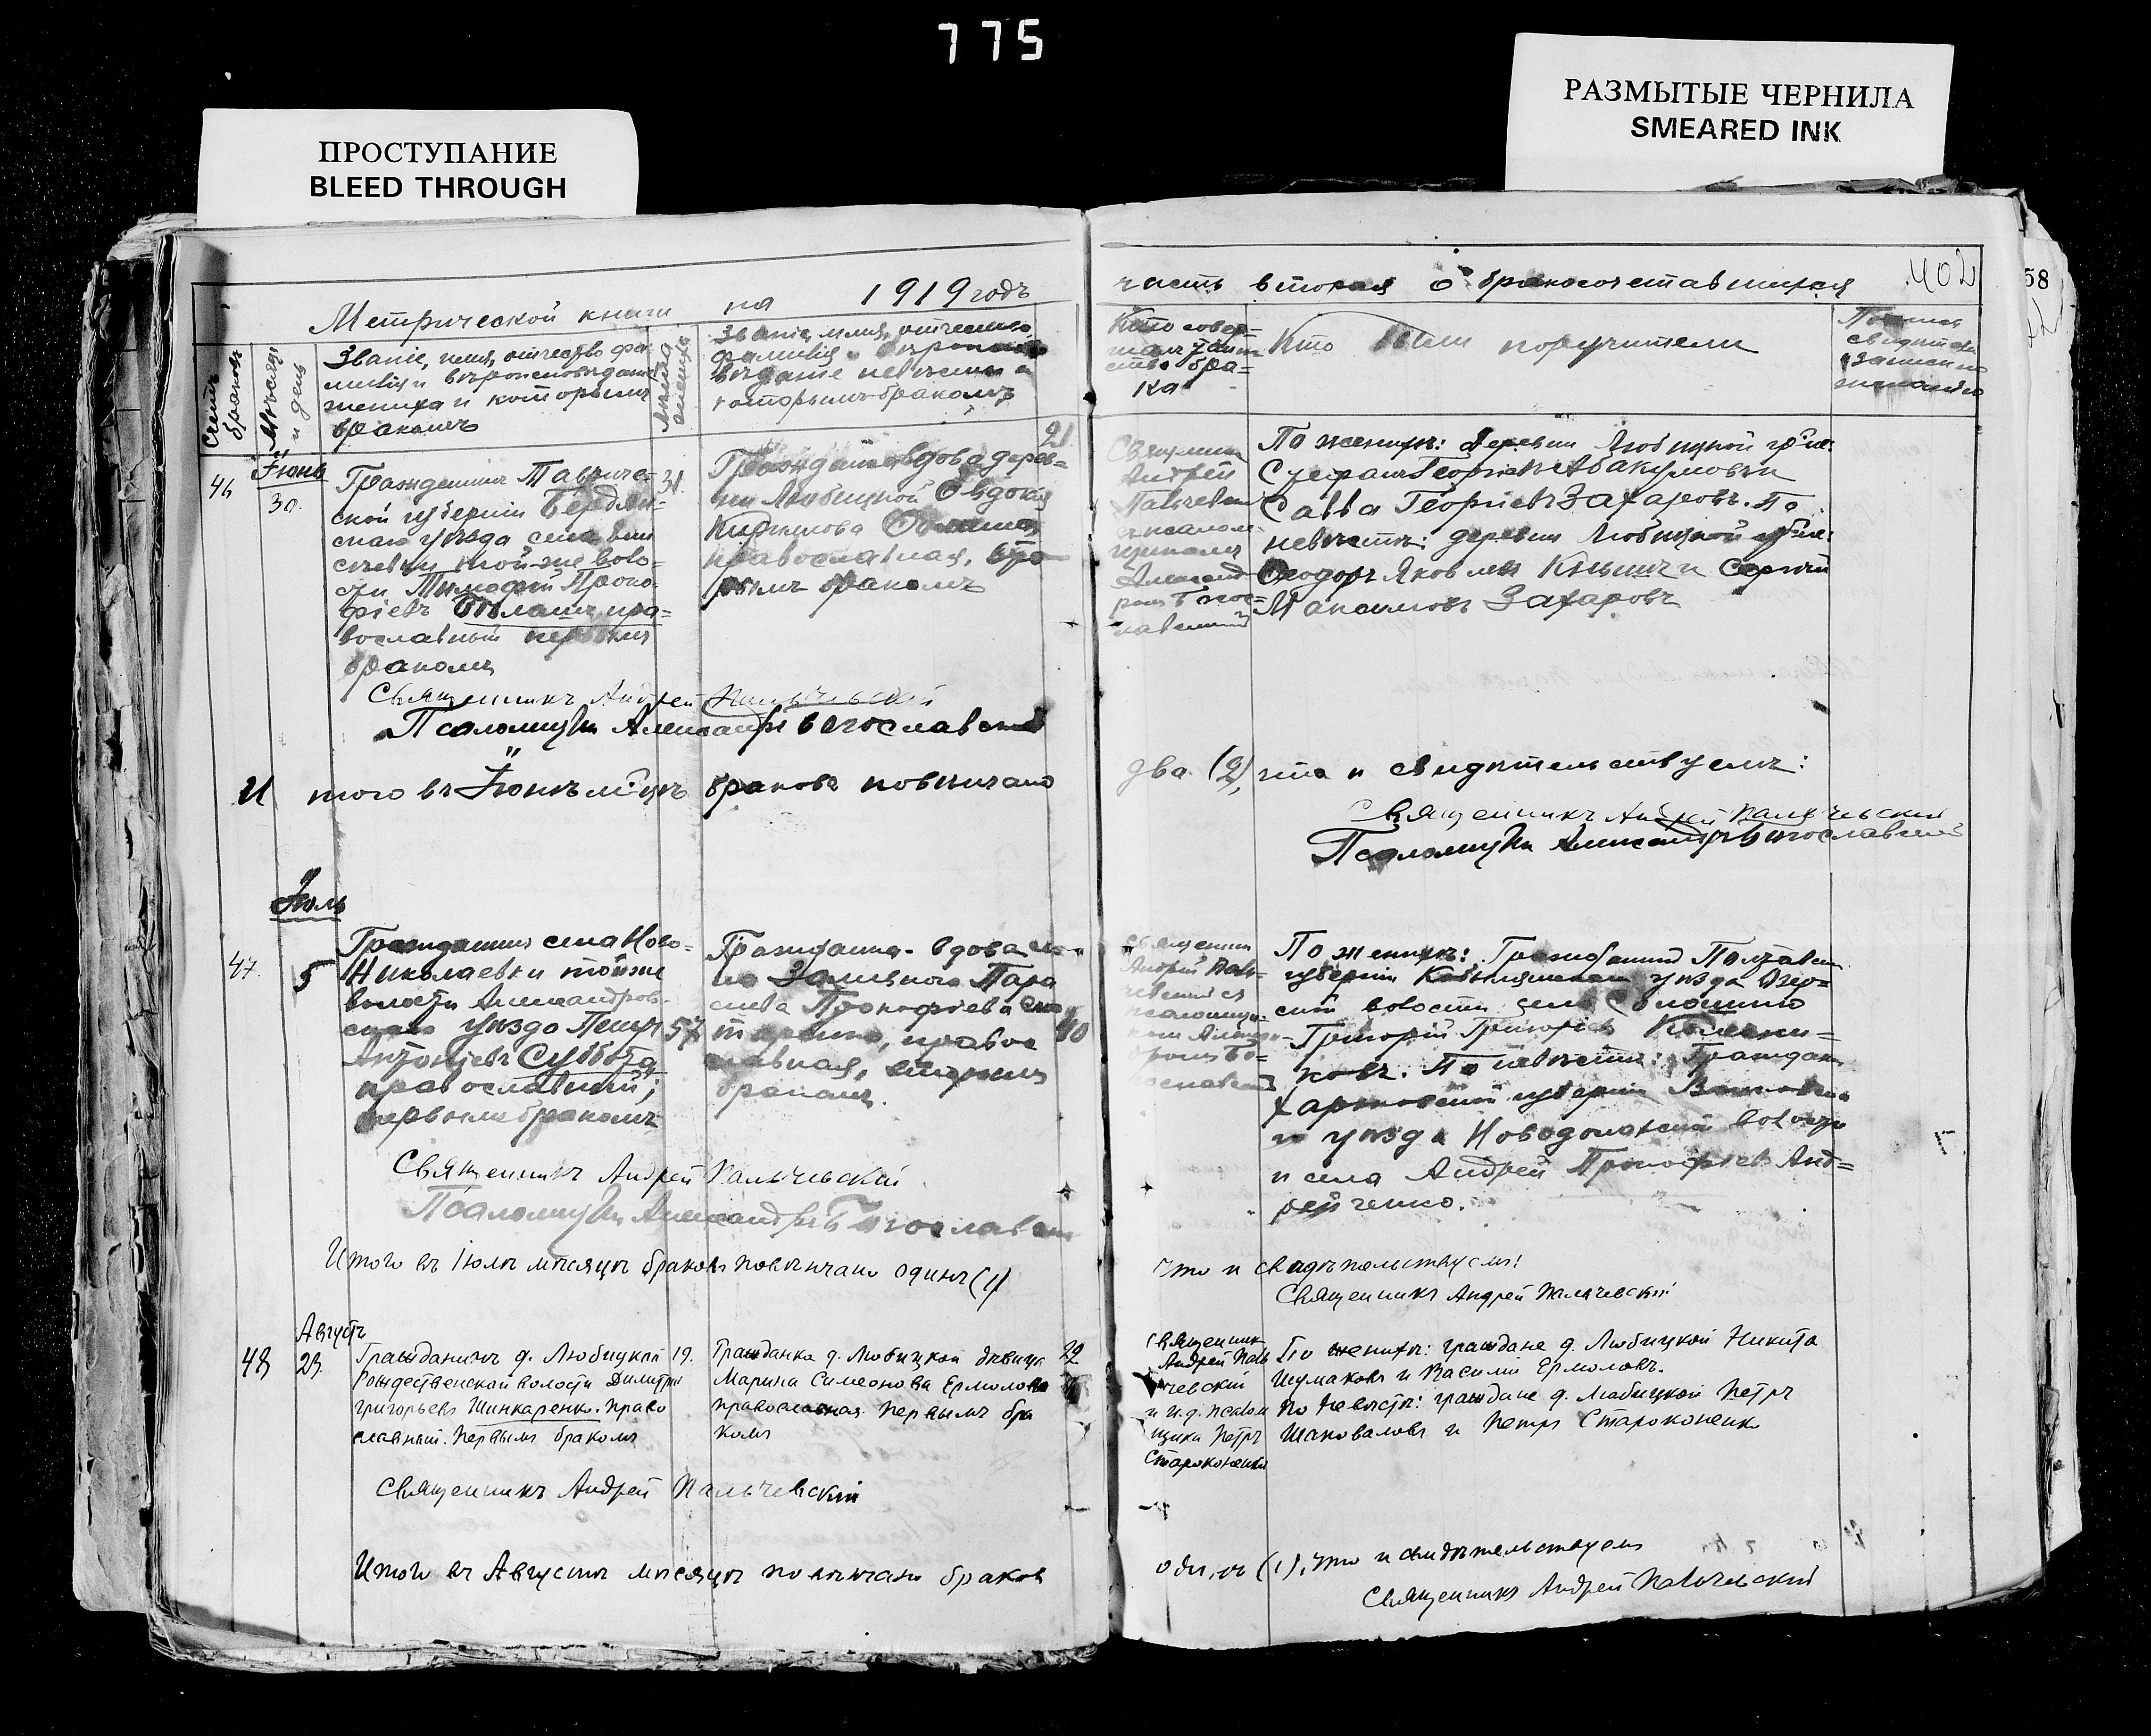 775
ПРОСТУПАНИЕ
BLEED THROUGH
РАЗМЫТЫЕ ЧЕРНИЛА
SMEARED INK
58
402
Метрической книги на 1919 годъ
часть вторая о бракосочетавшихся
Счетъ браковъ
Мѣсяцъ и день
Званіе, имя, отчество, фа-
милія и вѣроисповѣданіе
жениха и которымъ
бракомъ
Лѣта жениха
Званіе, имя, отчество,
фамилія и вѣроиспо-
вѣданіе невѣсты и
которымъ бракомъ
Кто совер-
шалъ таин-
ство бра-
ка
Кто были поручители
46
Іюнь
30.
Гражданинъ Тавриче-
ской губерніи Бердян-
скаго уѣзда села
той-же воло-
сти Тимофей Проко-
фіевъ пра-
вославный первымъ
бракомъ
31.
Гражданка вдова дерев-
ни Любицкой Евдокія
Кириллова
православная, вто-
рымъ бракомъ
21
Священник
Андрей
Пальчевскій
съ псалом-
щикомъ
Александ-
ромъ Бого-
славскимъ
По женихѣ: деревни Любицкой гр-не:
Стефанъ Георгіевъ Абакумовъ и
Савва Георгіевъ Захаровъ. По
невѣстѣ: деревни Любицкой гр-не:
Ѳеодоръ Яковлевъ и Сергѣй
Максимовъ Захаровъ
Священникъ Андрей Пальчевскій
Псаломщикъ Александръ Богославскій
Итого въ Іюнѣ м-цѣ браковъ повѣнчано
два (2), что и свидѣтельствуемъ:
Священникъ Андрей Пальчевскій
Псаломщикъ Александръ Богославскій
Іюль
47.
5
Гражданинъ села Ново-
Николаевки той же
волости Александров-
скаго уѣзда Петръ
Антоніевъ Суббота,
православный;
первымъ бракомъ
57
Гражданка-вдова се-
ла Заливного Пара
скева Прокофіева
правос
лавная, вторымъ
бракомъ.
40
Священник
Андрей Паль-
чевскій съ
псаломщи-
комъ Александ-
ромъ Бо-
гославскимъ
По женихѣ: Гражданинъ Полтавской
губерніи уѣзда Озер-
ской волости села
Григорій Григоріевъ
По невѣстѣ: Гражданин
Харьковской губерніи
уѣзда Новодонской волости
и села Андрей Прокофіевъ Анд-
рейченко.
Священникъ Андрей Пальчевскій
Псаломщикъ Александръ Богославскій
Итого въ Іюлѣ мѣсяцѣ браковъ повѣнчано одинъ (1)
что и свидѣтельствуемъ:
Священникъ Андрей Пальчевскій
Августъ
48
23.
Гражданинъ д. Любицкой
Рождественской волости Димитрій
Григорьевъ Шинкаренко. Право
славный. Первымъ бракомъ
19.
Гражданка д. Любицкой дѣвица
Марина Симеонова Ермолова
православная. Первымъ бра
комъ
22
Священник
Андрей Паль
чевскій
и и. д. псалом
щика Петръ
Староконенко
По женихѣ: граждане д. Любицкой Никита
Шумаковъ и Василій Ермоловъ.
По невѣстѣ: граждане д. Любицкой Петръ
Шаповаловъ и Петръ Староконенко
Священникъ Андрей Пальчевскій
Итого въ Августѣ мѣсяцѣ повѣнчано браковъ
одинъ (1), что и свидѣтельствуемъ
Священникъ Андрей Пальчевскій